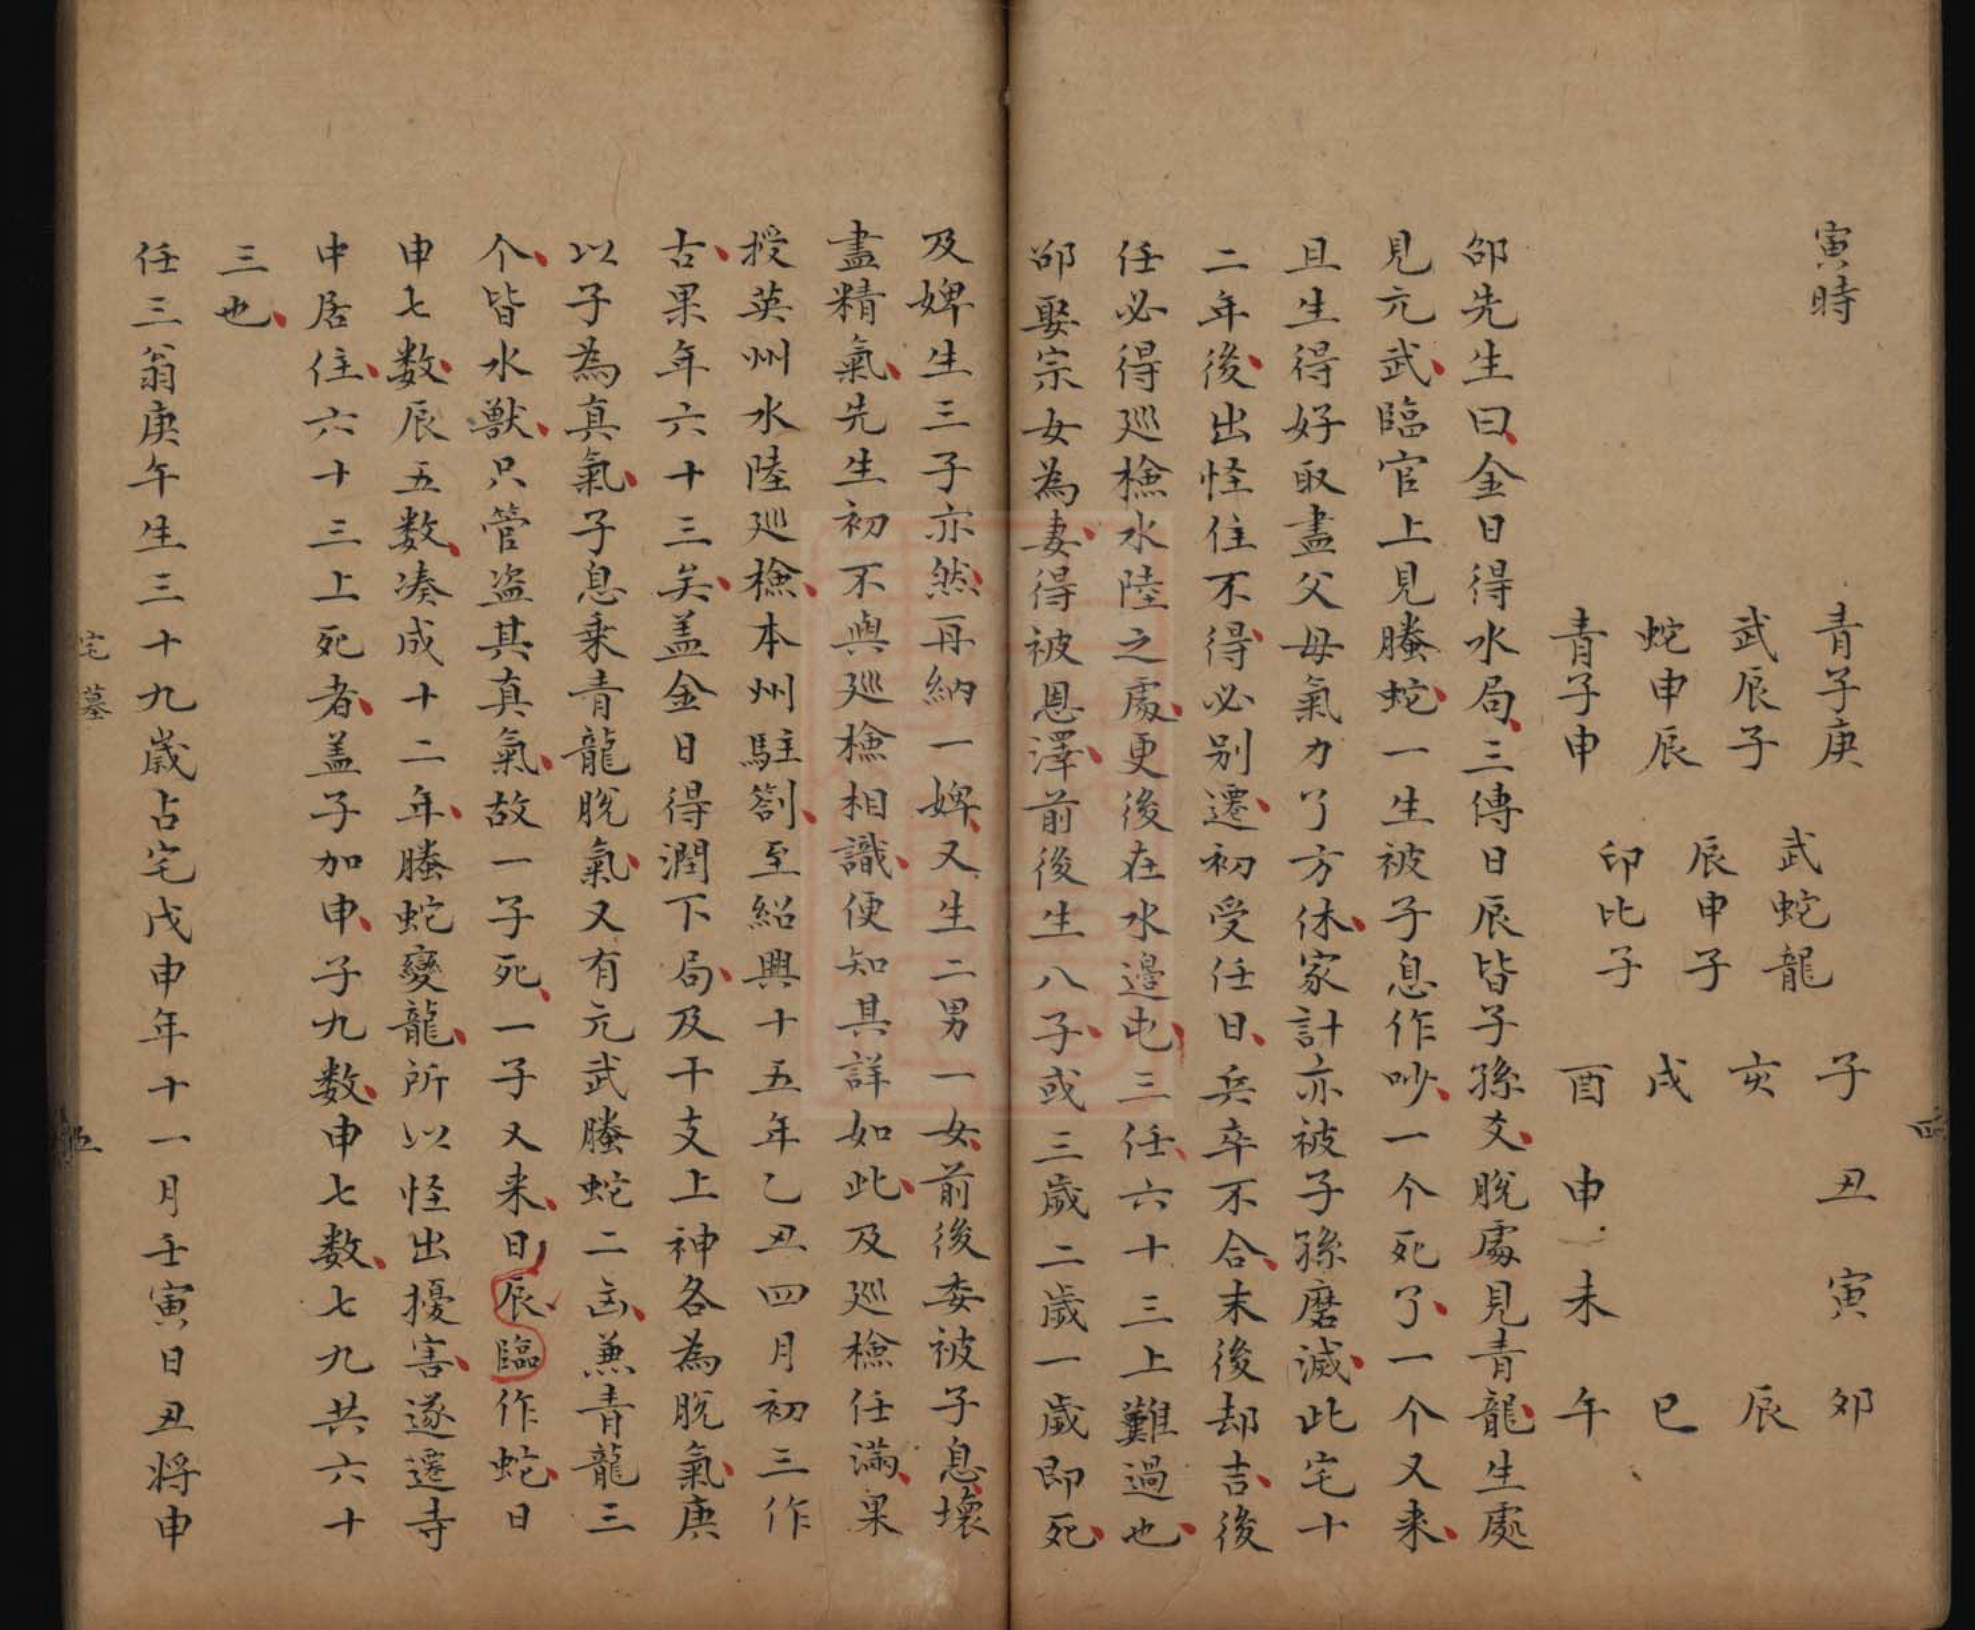 寅時
青子庚 武蛇龍 子丑寅卯
武辰子 辰申子 亥 辰
蛇申辰 印比子 戌 巳
青子申 酉申未午
邵先生曰金日得水局三傳日辰皆子孫爻脫處見青龍生處
見元武臨官上見螣蛇一生被子息作吵一个死了一个又来
且生得好取盡父母氣力了方休家計亦被子孫磨滅此宅十
二年後出怪住不得必别遷初受任日兵卒不合末後却吉後
任必得廵檢水陸之處更後在水邉屯三任六十三上難過也
邵娶宗女為妻得被恩澤前後生八子或三歲二歲一歲即死
及婢生三子亦然再納一婢又生二男一女前後委被子息壞
盡精氣先生初不與廵檢相識便知其詳如此及廵檢任滿果
授英州水陸廵檢本州駐劄至紹興十五年乙丑四月初三作
古果年六十三矣盖金日得潤下局及干支上神各為脫氣庚
以子為真氣子息乗青龍脫氣又有元武螣蛇二凶兼青龍三
个皆水獸只管盗其真氣故一子死一子又来日辰臨作蛇日
申七数辰五数凑成十二年螣蛇變龍所以怪出擾害遂遷寺
中居住六十三上死者盖子加申子九数申七数七九共六十
三也
任三翁庚午生三十九歲占宅戊申年十一月壬寅日丑将申
宅墓
五
四